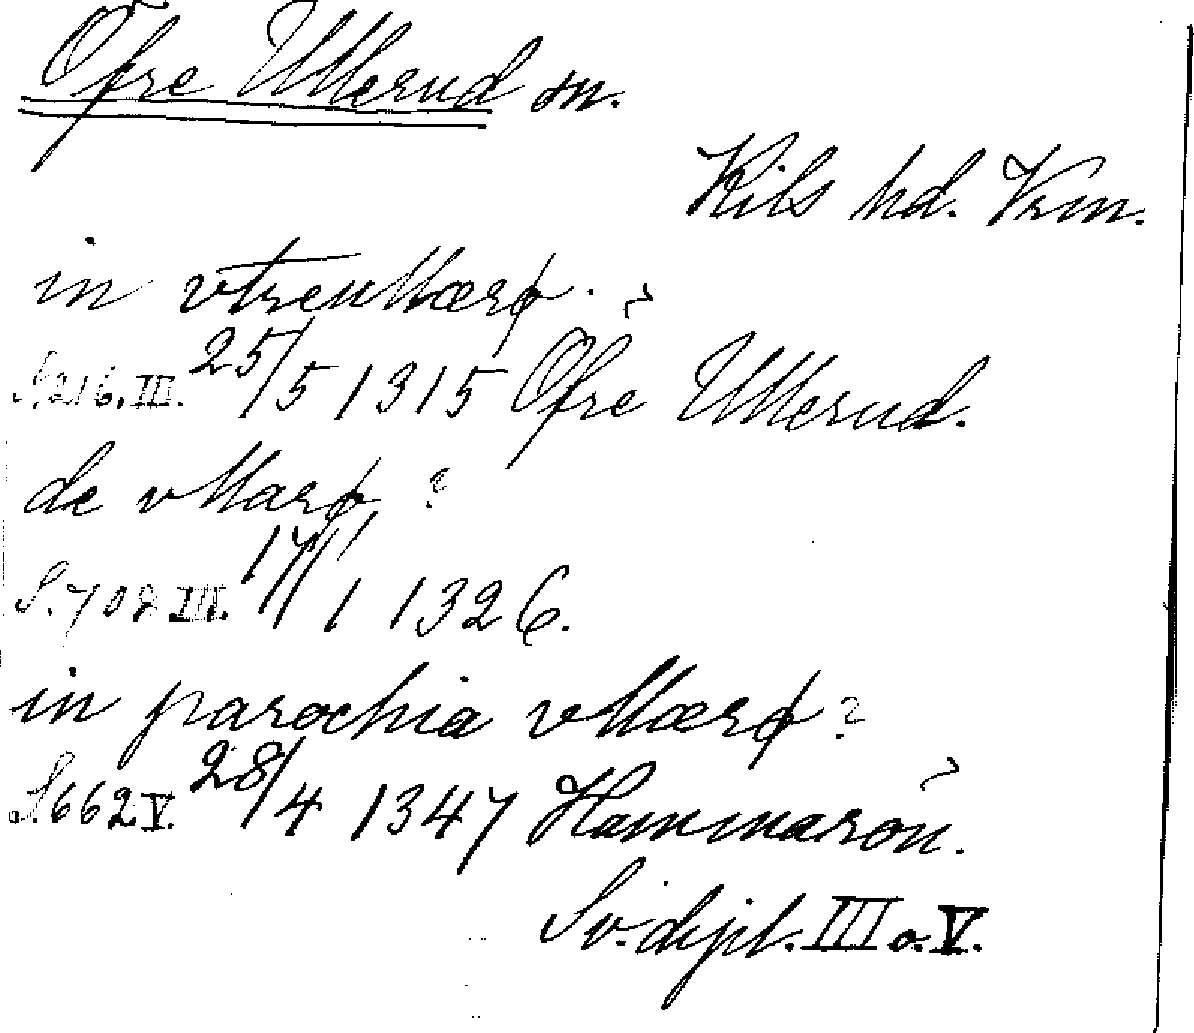 Öfre Ullerud sn.
Kils hd. Vrm.
in vtrenllærþ.
S. 216. III. 25/5 1315 Öfre Ullerud.
de vllarþ ?
S. 708 III. 17/1 1326.
in parochia vllærþ ?
S. 662 V. 28/4 1347 Hammarön.
Sv. dipl. III o. V.